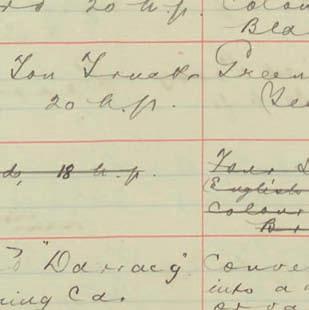 20 h.p. Colou
Bla
Ton Truck Green
20 h.p. Yel
18 h.p. Four S
English
colour
Br
"Darracq" Conve
ing Co. into a